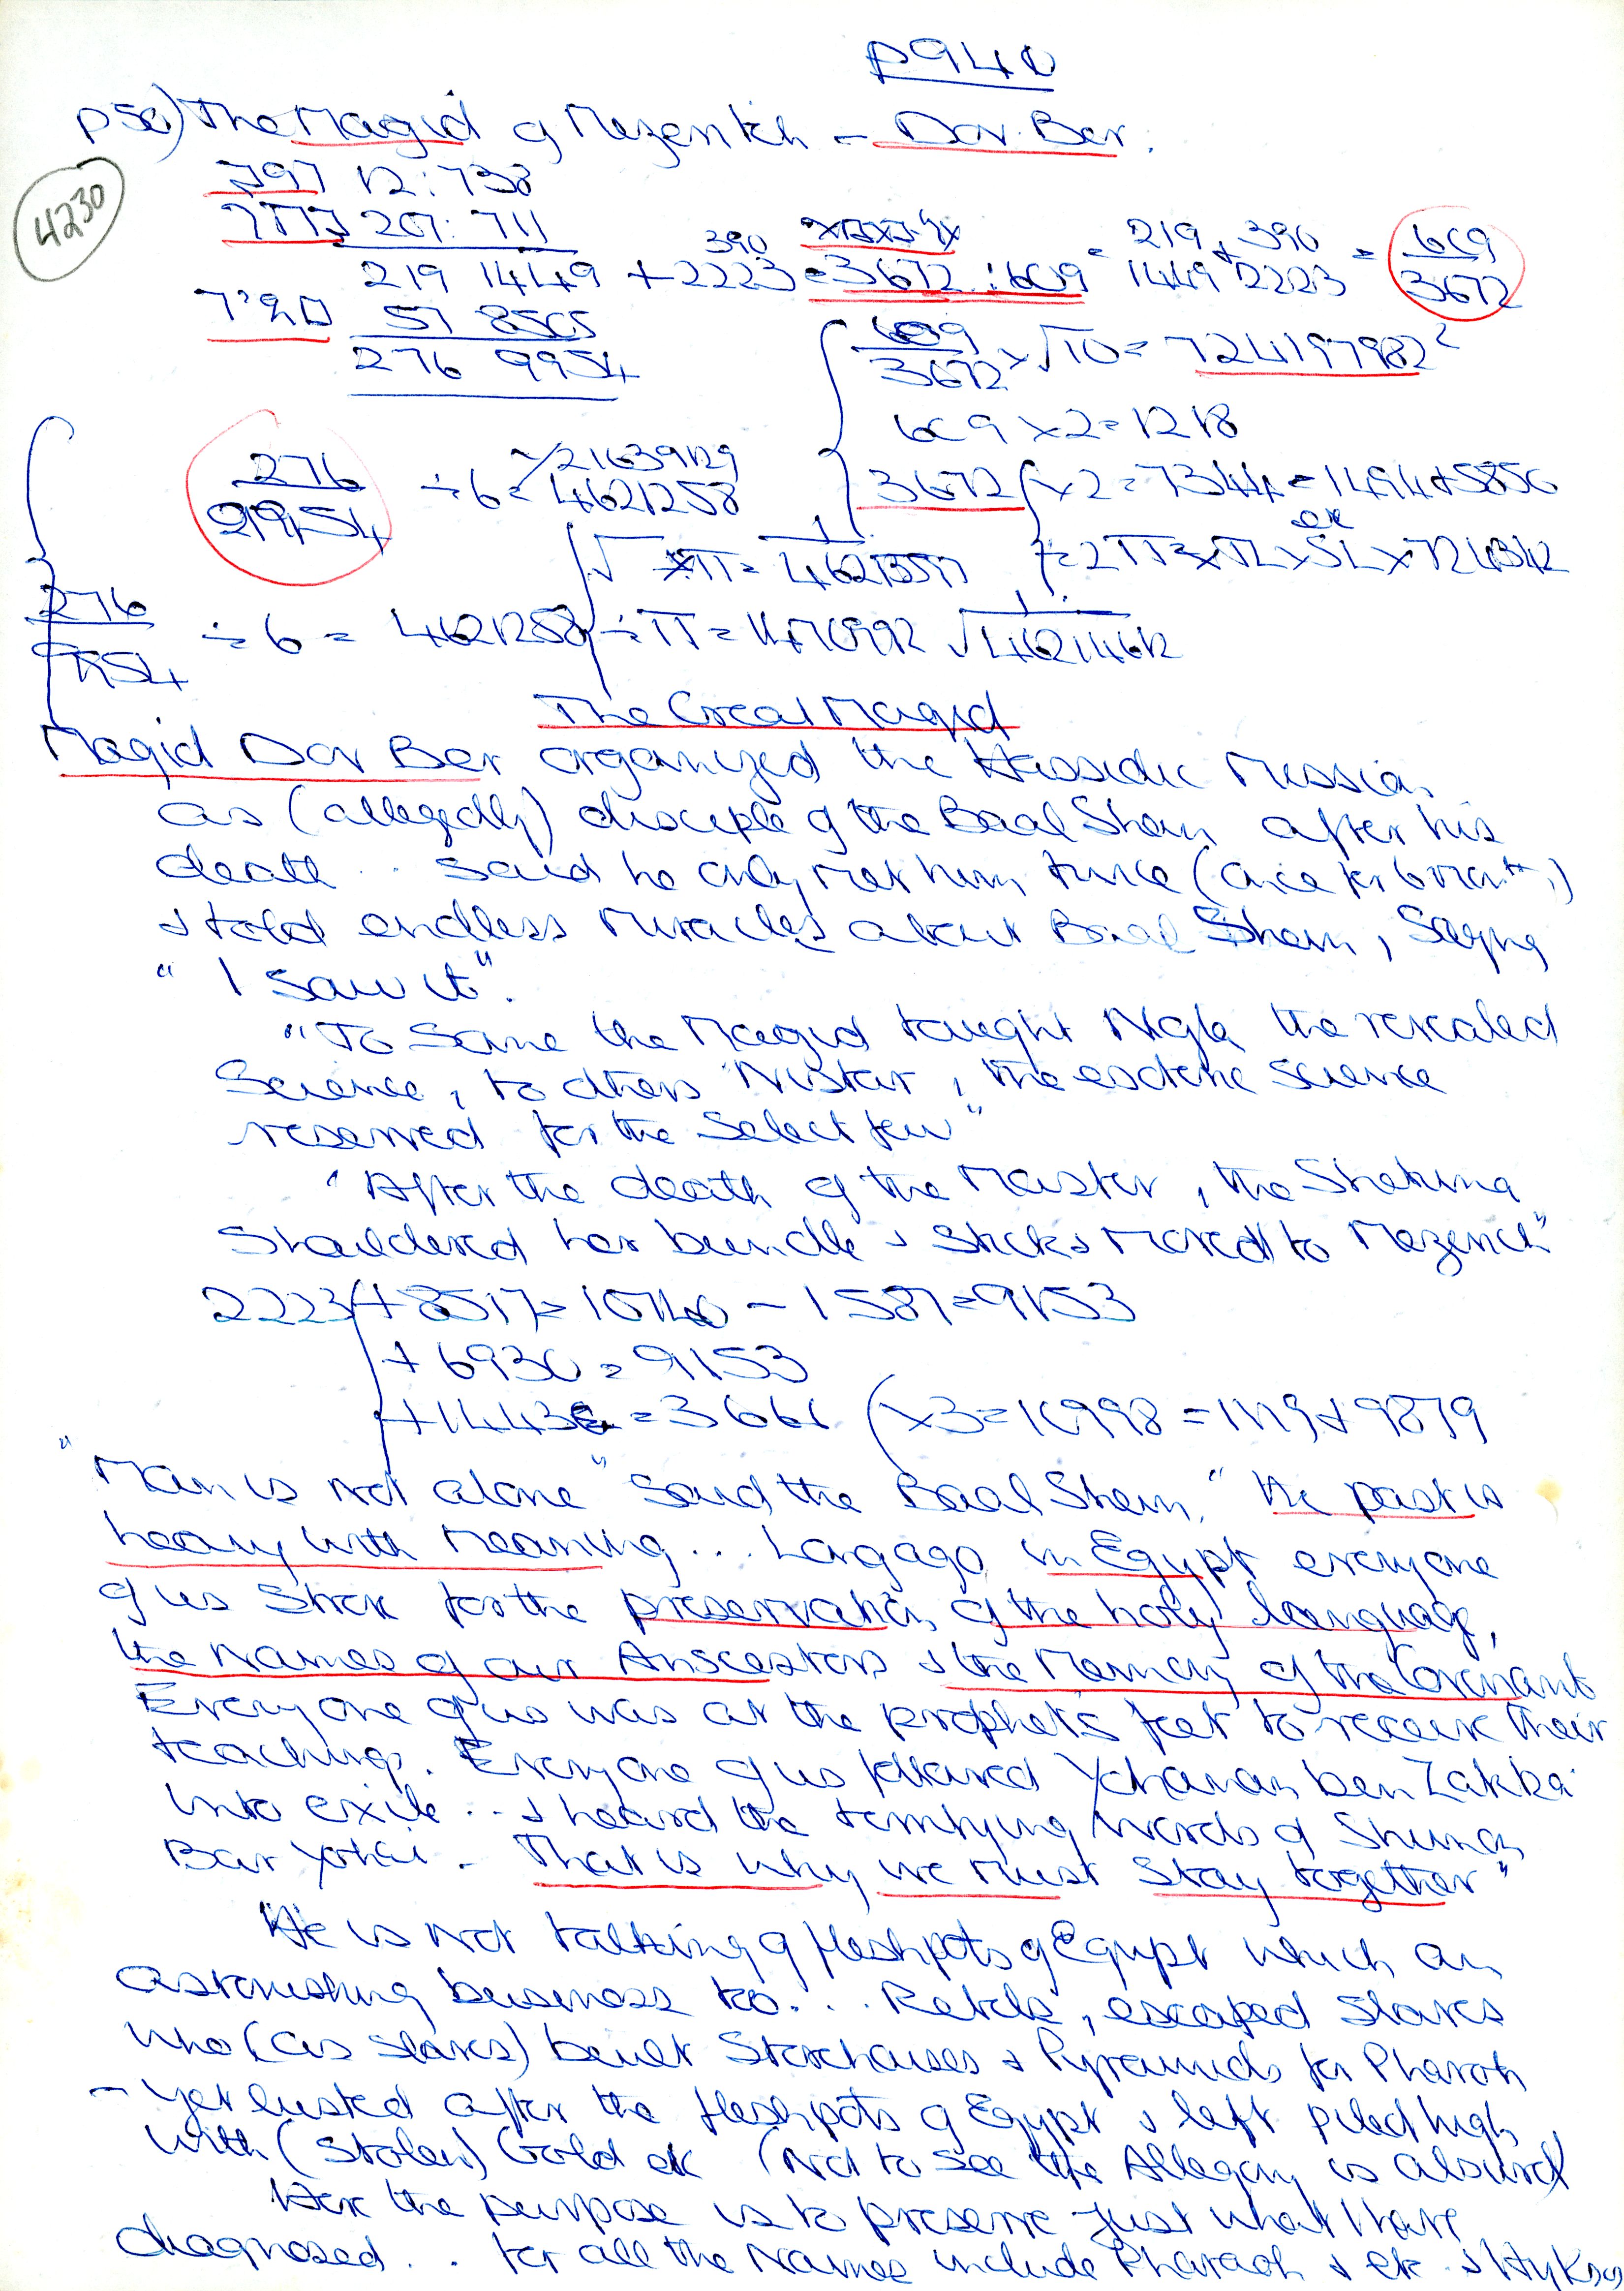 p940
p50) The Magid of Mezeritch – Dov Ber.
4230
12 : 738
207 : 711
219 1449 + 2223 = 3672 : 609 = 219 + 390 = 609
390 1449 2223 3672
57 8505
276 9954
609 × √10 = 724197982²
3672
609 × 2 = 1218
276 ÷ 6 = 4621258
3672 × 2 = 7344 = 1494 + 5850
276 ÷ 6 = 4621258 ÷ π =
The Great Magid
Magid Dov Ber organized the Hassidic Mission
as (allegedly) disciple of the Baal Shem after his
death .. Said he only met him twice (once for 6 months)
& told endless miracles about Baal Shem, saying
"I saw it".
"To some the Magid taught Nigle the revealed
Science, to others Nistar, the esoteric science
reserved for the select few"
"After the death of the Master, the Shekina
shouldered her bundle & sticks moved to Mezerich"
2223 + 8517 = 10740 – 1587 = 9153
+ 6930 = 9153
+ 1443 = 3666 (×3 = 10998 = 1119 + 9879
"Man is not alone" said the Baal Shem, "the past is
heavy with meaning ... Long ago in Egypt everyone
of us strove for the preservation of the holy language,
the names of our Anscestors & the memory of the Covenant
Everyone of us was at the prophet's feet to receive their
teachings. Everyone of us followed Yohanan ben Zakkai
into exile ... & heard the terrifying words of Shimon
Bar Yohai – That is why we must stay together"
"He is not talking of fleshpots of Egypt which an
astonishing business too ... Rebels, escaped slaves
who (as slaves) built Storehouses & Pyramids for Pharoh
– yet lusted after the fleshpots of Egypt & left piled high
with (stolen) Gold etc (Not to see the Allegory is absurd)
Here the purpose is to preserve just what I have
diagnosed .. for all the Names include Pharaoh & etc &